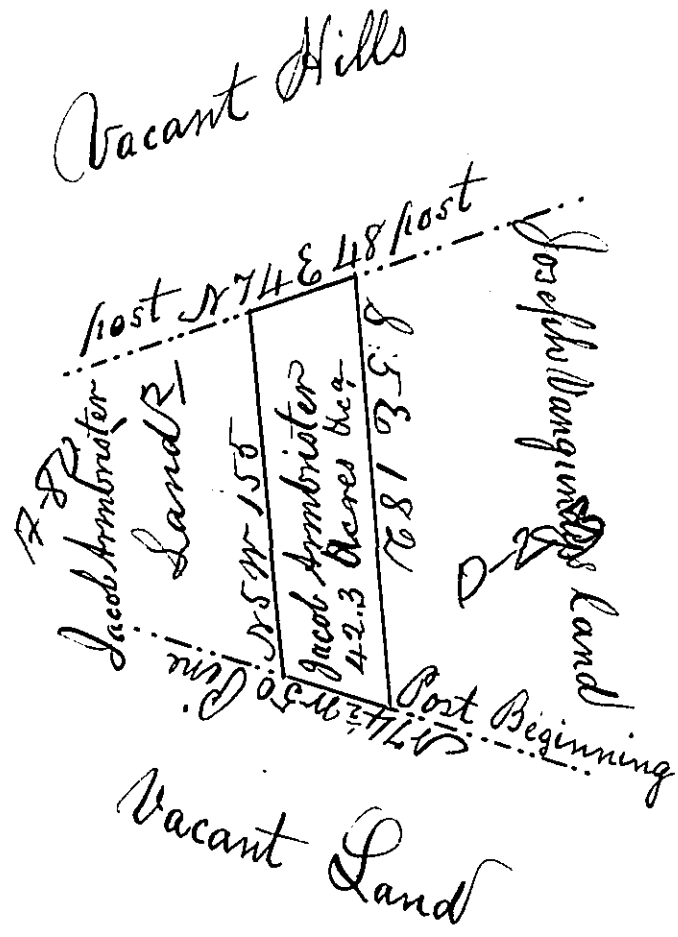 Vacant Hills
post N 74 E 48 post
Jacob Armbrister
Land
N 5 W 155
Jacob Armbrister
42.3 Acres &ca
S 5 E 182
Joseph
Land
N 74½ W 50 Pine
Post Beginning
Vacant Land